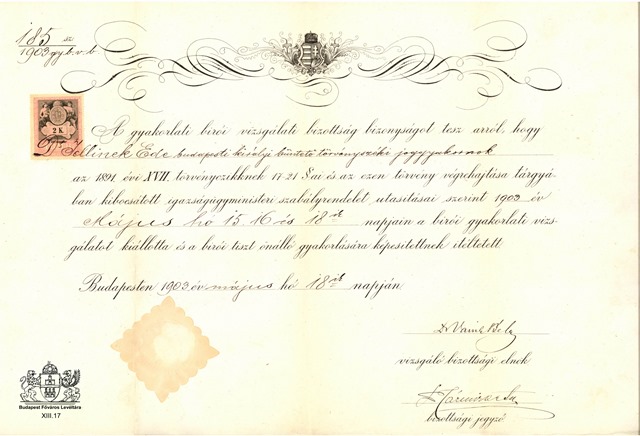 185 sz
1903 gyb. v. b
2 K
A gyakorlati birói vizsgálati bizottság bizonyságot tesz arról, hogy
Dr Jellinek Ede budapesti királyi büntető törvényszéki joggyakornok
az 1891. évi XVII. törvényczikknek 17-21 §ai és az ezen törvény végrehajtása tárgyá-
ban kibocsátott igazságügyministeri szabályrendelet utasításai szerint 1903 év
Május hó 15. 16 és 18ik napjain a birói gyakorlati vizs-
gálatot kiállotta és a birói tiszt önálló gyakorlására képesítettnek itéltetett.
Budapesten 1903 év május hó 18ik napján
Dr
vizsgáló bizottsági elnök
bizottsági jegyző
Budapest Főváros Levéltára
XIII.17